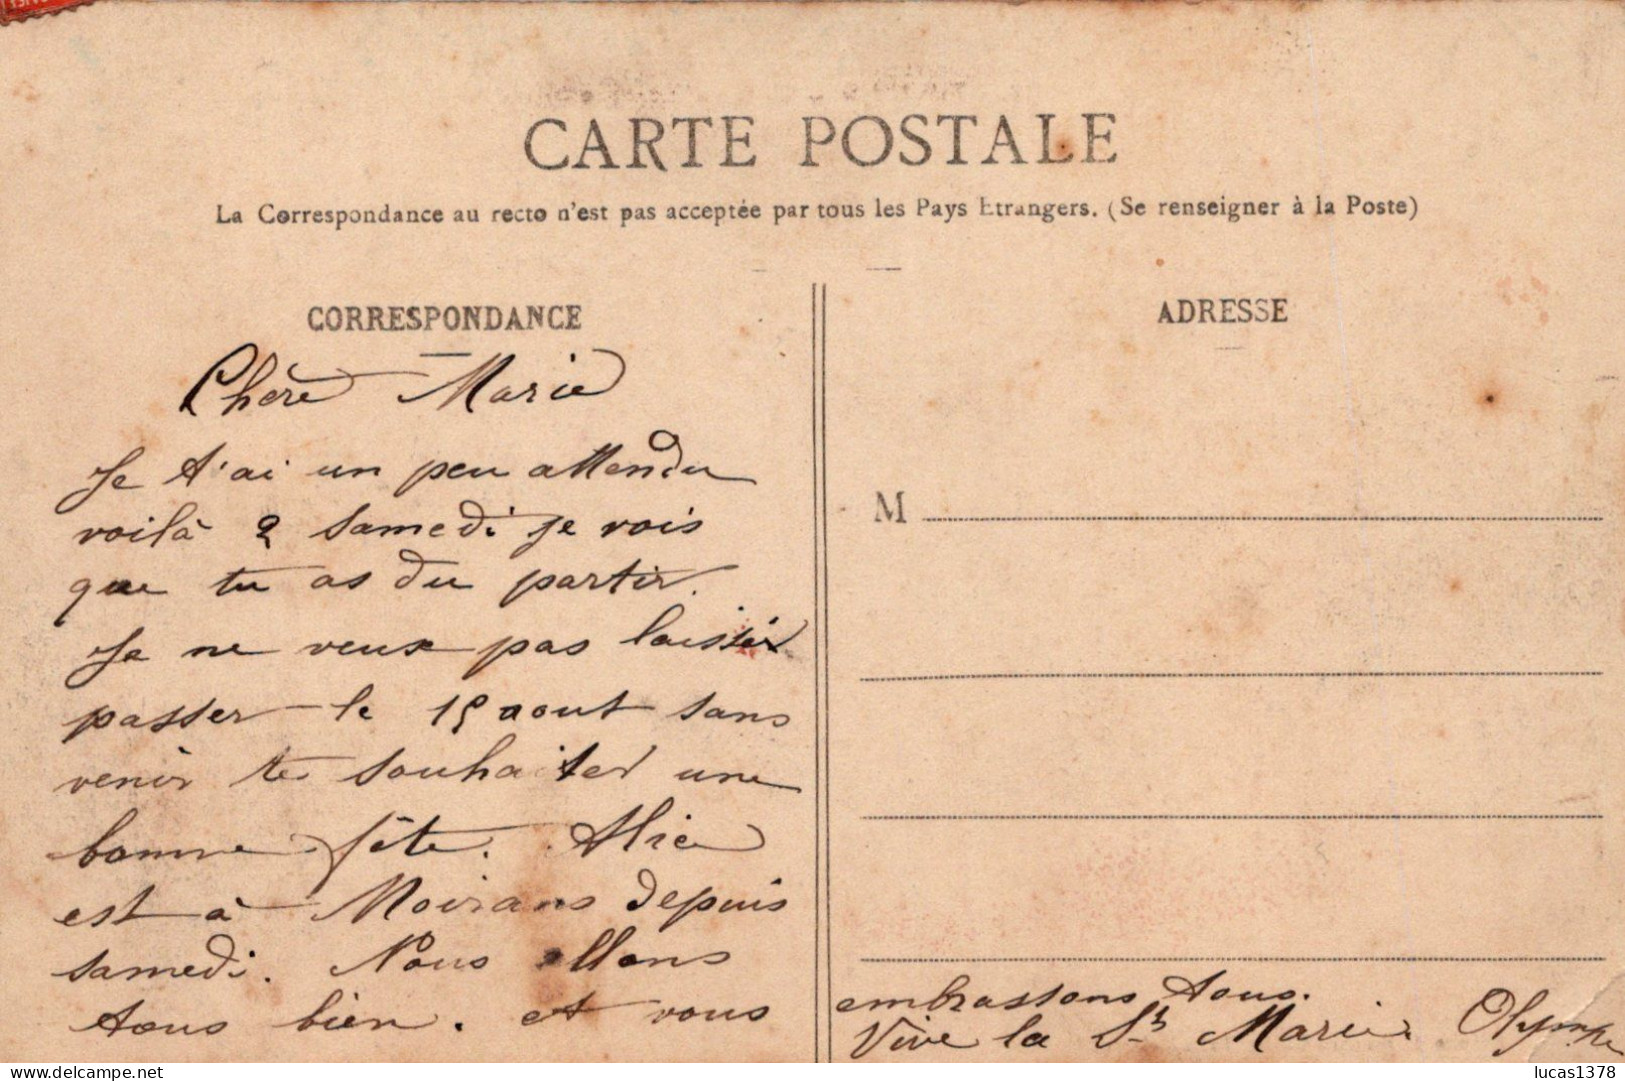 CARTE POSTALE
La Correspondance au recto n'est pas acceptée par tous les Pays Etrangers. (Se renseigner à la Poste)
CORRESPONDANCE
Chère Marie
Je t'ai un peu attendu
voilà 2 samedi je vois
que tu as du partir.
Je ne veux pas laisser
passer le 15 aout sans
venir te souhaiter une
bonne fête. Alice
est à Moirans depuis
samedi. Nous allons
tous bien. et vous
ADRESSE
M
embrassons tous.
Vive la St Marie. Olympe
delcampe.net
lucas1378